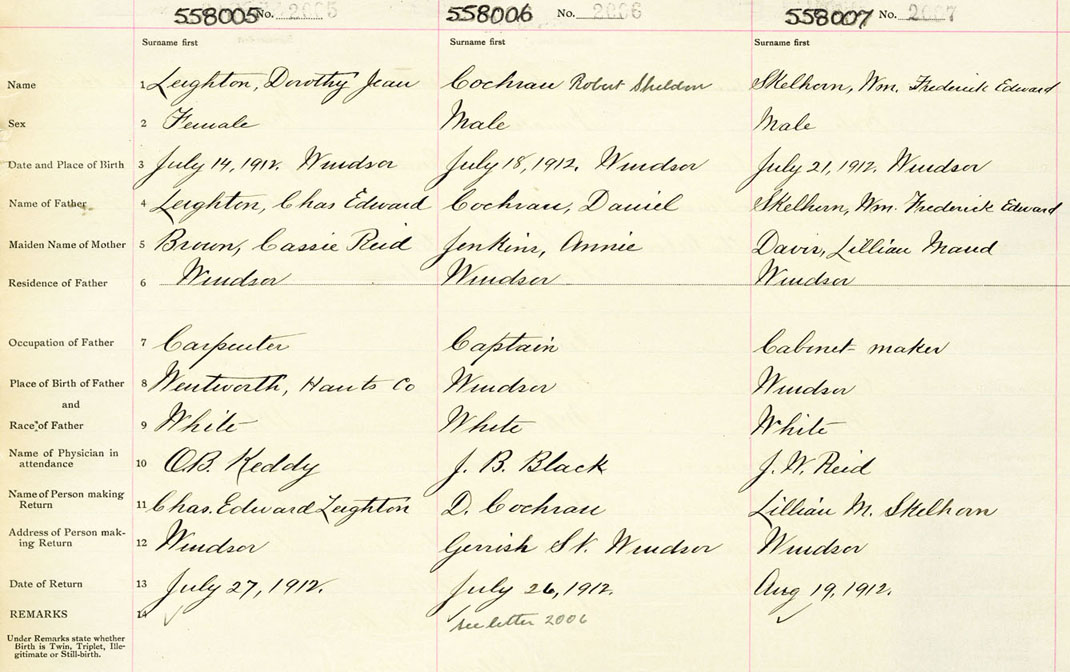 558005 No. 2005 558006 No. 2006 558007 No. 2007
Surname first Surname first Surname first
Name 1 Leighton, Dorothy Jean Cochran Robert Sheldon Skelhorn, Wm. Frederick Edward
Sex 2 Female Male Male
Date and Place of Birth 3 July 14, 1912. Windsor July 18, 1912. Windsor July 21, 1912. Windsor
Name of Father 4 Leighton, Chas Edward Cochran, Daniel Skelhorn, Wm. Frederick Edward
Maiden Name of Mother 5 Brown, Cassie Reid Jenkins, Annie Davis, Lillian Maud
Residence of Father 6 Windsor Windsor Windsor
Occupation of Father 7 Carpenter Captain Cabinet-maker
Place of Birth of Father 8 Wentworth, Hants Co Windsor Windsor
and
Race of Father 9 White White White
Name of Physician in
attendance 10 O.B. Keddy J. B. Black J. W. Reid
Name of Person making
Return 11 Chas. Edward Leighton D. Cochran Lillian M. Skelhorn
Address of Person mak-
ing Return 12 Windsor Gerrish St. Windsor Windsor
Date of Return 13 July 27, 1912. July 26, 1912. Aug 19, 1912.
REMARKS 14 see letter 2006
Under Remarks state whether
Birth is Twin, Triplet, Ille-
gitimate or Still-birth.